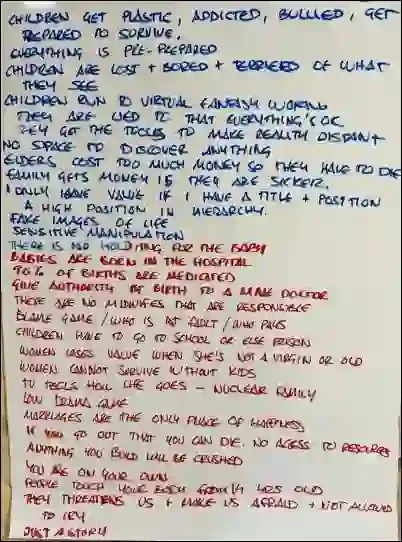 CHILDREN GET PLASTIC, ADDICTED, BULLIED, GET
PREPARED TO SURVIVE.
EVERYTHING IS PRE-PREPARED
CHILDREN ARE LOST + BORED + TERRIFIED OF WHAT
THEY SEE
CHILDREN RUN TO VIRTUAL FANTASY WORLD
THEY ARE LIED TO THAT EVERYTHING'S OK
THEY GET THE TOOLS TO MAKE REALITY DISTANT
NO SPACE TO DISCOVER ANYTHING
ELDERS COST TOO MUCH MONEY SO THEY HAVE TO DIE
FAMILY GETS MONEY IF THEY ARE SICKER.
I ONLY HAVE VALUE IF I HAVE A TITLE + POSITION
A HIGH POSITION IN HIERARCHY.
FAKE IMAGES OF LIFE
SENSITIVE MANIPULATION
THERE IS NO HOLDING FOR THE BABY
BABIES ARE BORN IN THE HOSPITAL
90% OF BIRTHS ARE MEDICATED
GIVE AUTHORITY AT BIRTH TO A MALE DOCTOR
THERE ARE NO MIDWIFES THAT ARE RESPONSIBLE
BLAME GAME / WHO IS AT FAULT / WHO PAYS
CHILDREN HAVE TO GO TO SCHOOL OR ELSE PRISON
WOMEN LOSES VALUE WHEN SHE'S NOT A VIRGIN OR OLD
WOMEN CANNOT SURVIVE WITHOUT KIDS
TV TELLS HOW LIFE GOES - NUCLEAR FAMILY
DRAMA GAME
MARRIAGES ARE THE ONLY PLACE OF HAPPINESS
IF YOU GO OUT THAT YOU CAN DIE. NO ACESS TO RESOURCES
ANYTHING YOU BUILD WILL BE CRUSHED
YOU ARE ON YOUR OWN
PEOPLE TOUCH YOUR BODY FROM 14 YRS OLD
THEY THREATENS US + MAKE US AFRAID + NOT ALLOWED
TO CRY
JUST A STORY